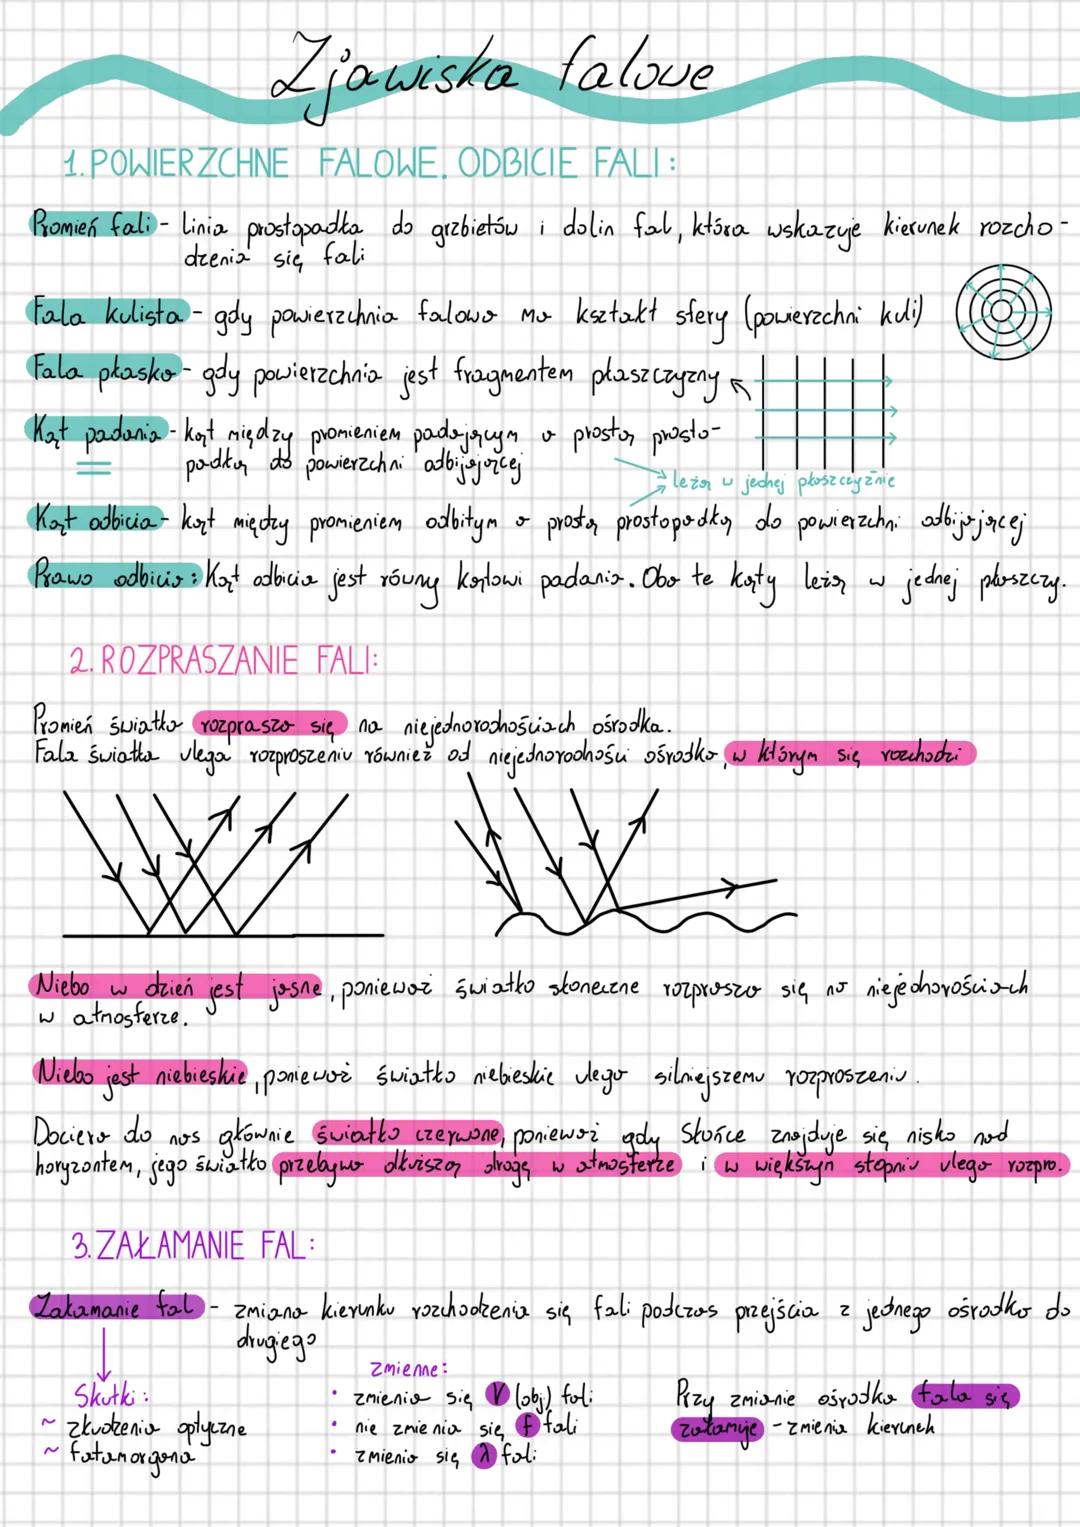 Zjawiska falowe
1. POWIERZCHNE FALOWE. ODBICIE FALI:
Promień fali - linia prostopadła do grzbietów i dolin fal, która wskazuje kierunek rozcho-
dzenia się fali
Fala kulista - gdy powierzchnia falowa ma kształt sfery (powierzchni kuli)
Fala płaska - gdy powierzchnia jest fragmentem płaszczyzny
Kąt padania - kąt między promieniem padającym a prostą prosto-
padłą do powierzchni odbijającej
leżą w jednej płaszczyźnie
Kąt odbicia - kąt między promieniem odbitym a prostą prostopadłą do powierzchni odbijającej
Prawo odbicia: Kąt odbicia jest równy kątowi padania. Oba te kąty leżą w jednej płaszczy.
2. ROZPRASZANIE FALI:
Promień światła rozprasza się na niejednorodnościach ośrodka.
Fala światła ulega rozproszeniu również od niejednorodności ośrodka, w którym się rozchodzi
Niebo w dzień jest jasne, ponieważ światło słoneczne rozprasza się na niejednorościach
w atmosferze.
Niebo jest niebieskie, ponieważ światło niebieskie ulega silniejszemu rozproszeniu.
Dociera do nas głównie światło czerwone, ponieważ gdy Słońce znajduje się nisko nad
horyzontem, jego światło przebywa dłuższą drogę w atmosferze i w większym stopniu ulega rozpro.
3. ZAŁAMANIE FAL:
Załamanie fal - zmiana kierunku rozchodzenia się fali podczas przejścia z jednego ośrodka do
drugiego
zmienne:
Skutki:
~ złudzenia optyczne
~ fatamorgana
• zmienia się V (obj) fali
• nie zmienia się f fali
• zmienia się λ fali
Przy zmianie ośrodka fala się
załamuje - zmienia kierunek